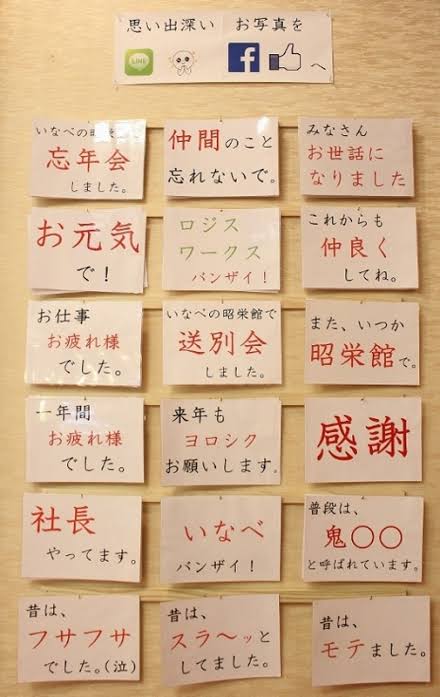 思い出深い お写真を
LINE f へ
いなべの昭栄
忘年会
しました。
仲間のこと
忘れないで。
みなさん
お世話に
なりました
お元気
で！
ロジス
ワークス
バンザイ！
これからも
仲良く
してね。
お仕事
お疲れ様
でした。
いなべの昭栄館で
送別会
しました。
また、いつか
昭栄館で。
一年間
お疲れ様
でした。
来年も
ヨロシク
お願いします。
感謝
社長
やってます。
いなべ
バンザイ！
普段は、
鬼〇〇
と呼ばれています。
昔は、
フサフサ
でした。(泣)
昔は、
スラ〜ッと
してました。
昔は、
モテました。